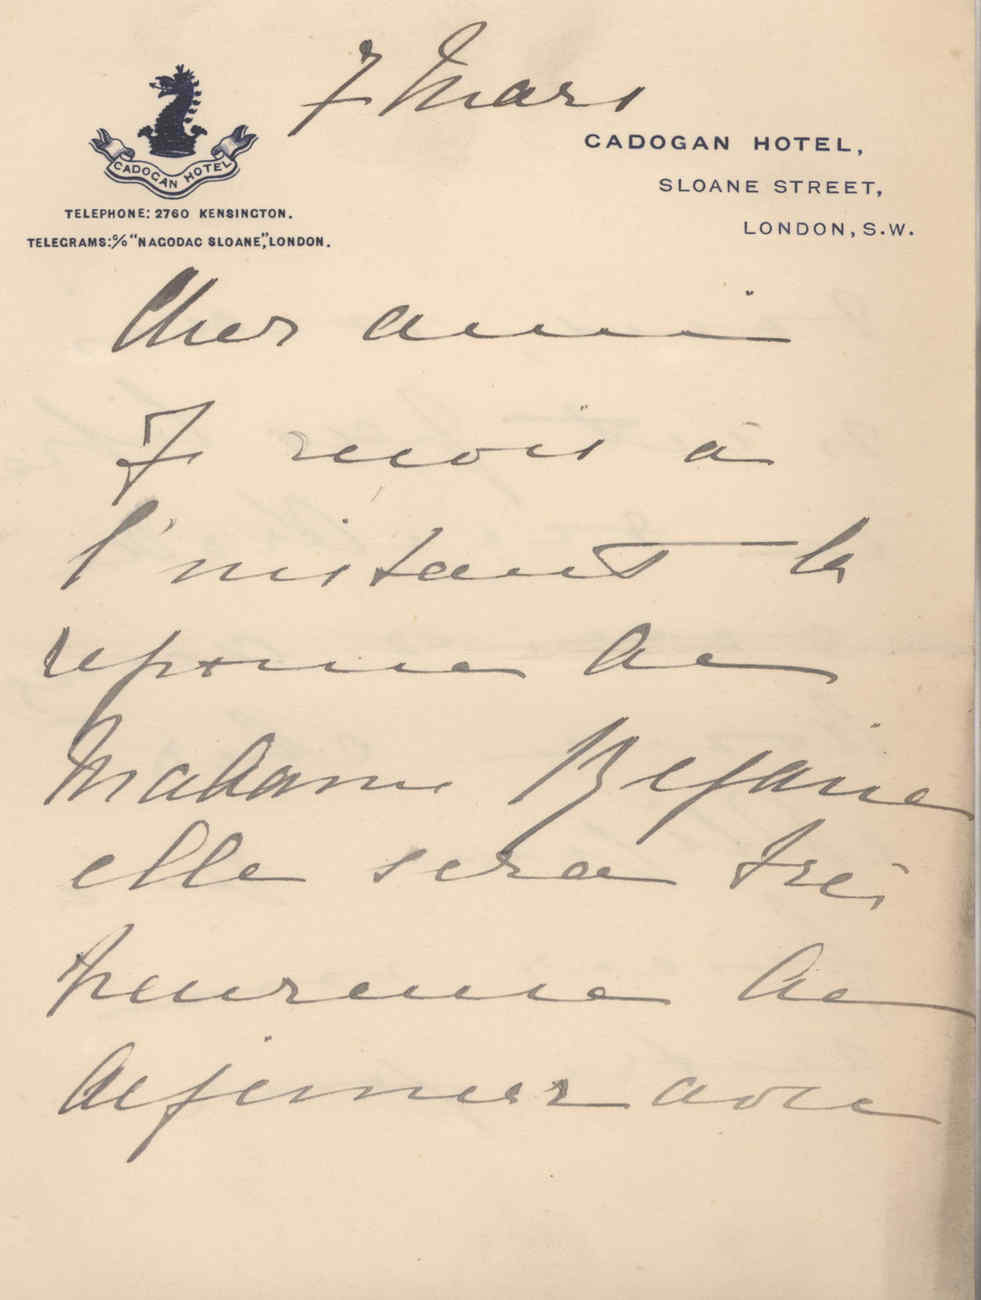 7 Mars
CADOGAN HOTEL
TELEPHONE: 2760 KENSINGTON.
TELEGRAMS: c/o "NAGODAC SLOANE", LONDON.
CADOGAN HOTEL,
SLOANE STREET,
LONDON, S.W.
Cher ami
Je recois à
l'instant la
reponse de
Madame Bejane
elle sera très
heureuse de
dejeuner avec